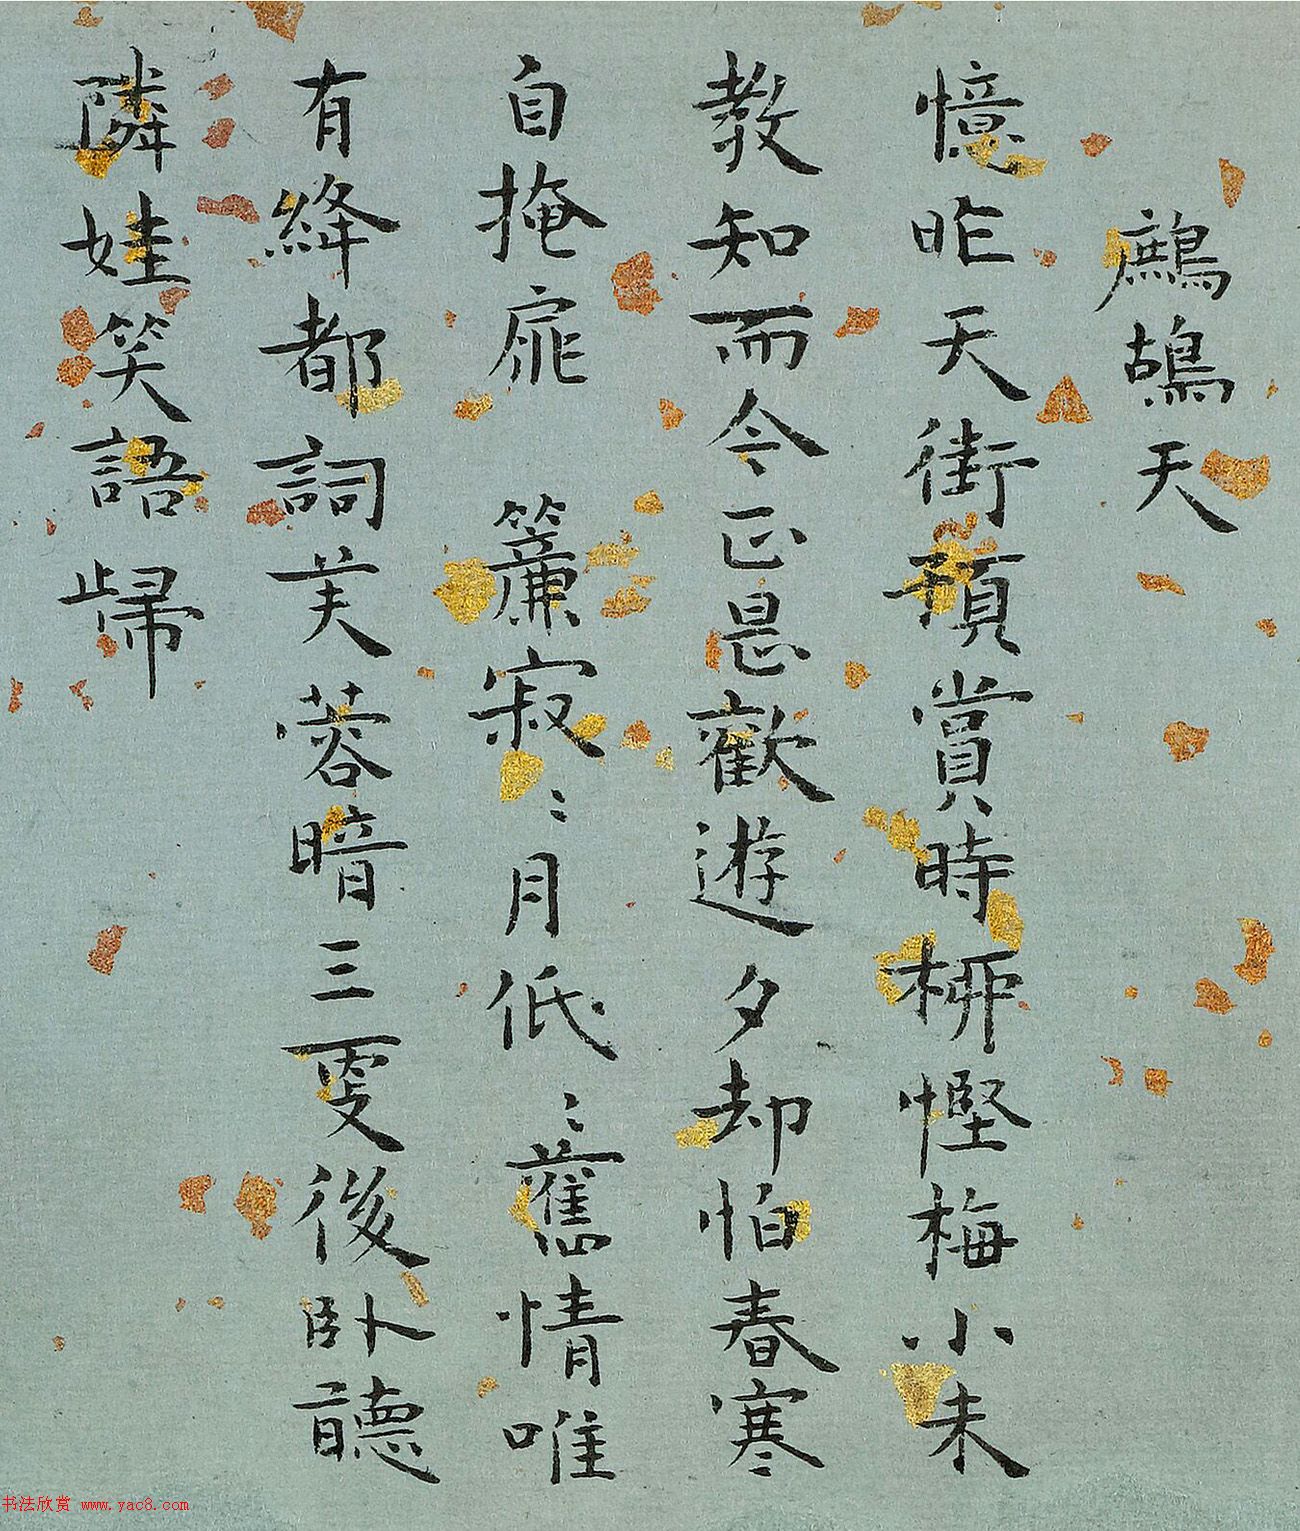 鷓鴣天
憶昨天街預賞時柳慳梅小未
教知而今正是歡遊夕却怕春寒
自掩扉 簾寂〻月低〻舊情唯
有絳都詞芙蓉暗三更後卧聽
隣娃笑語歸
书法欣赏 www.yac8.com